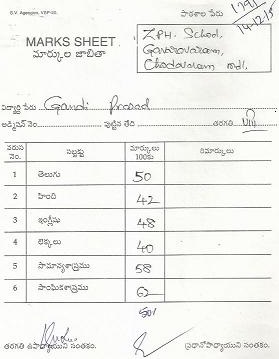 S.V. Agencies, VSP-20.
పాఠశాల పేరు
1791
14-12-15
MARKS SHEET
మార్కుల జాబితా
ZPH. School,
Gavaravaram,
Chodavaram mdl.
విద్యార్థి పేరు Gandi Prasad
అడ్మిషన్ నెం. పుట్టిన తేది తరగతి VIII
వరుస నెం. సబ్జక్టు మార్కులు 100కు రిమార్కులు
1 తెలుగు 50
2 హింది 42
3 ఇంగ్లీషు 48
4 లెక్కలు 40
5 సామాన్యశాస్త్రము 58
6 సాంఘికశాస్త్రము 62
తరగతి ఉపాధ్యాయుని సంతకం. ప్రధానోపాధ్యాయుని సంతకం.